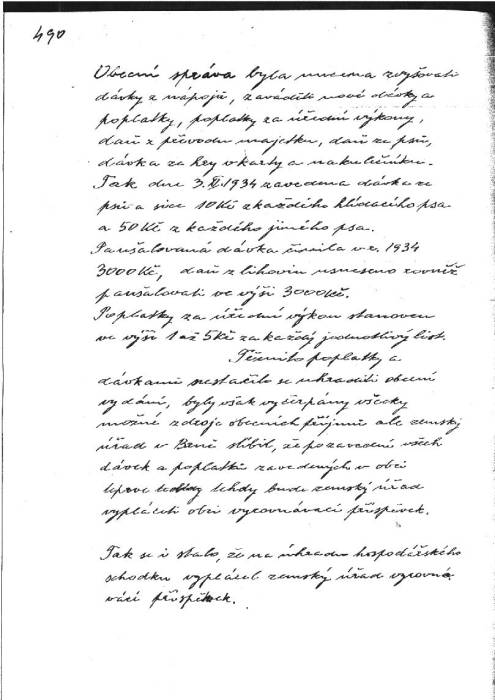 490
Obecní správa byla nucena zvyšovati
dávky z nápojů, zaváděti nové dávky a
poplatky, poplatky za úřední výkony,
daň z převodu majetku, daň ze psů,
dávka za hry v karty a na kulečníku.
Tak dne 3. XI. 1934 zavedena dávka ze
psů a sice 10 Kč z každého hlídacího psa
a 50 Kč z každého jiného psa.
Paušalovaná dávka činila v r. 1934
3000 Kč, daň z lihovin usneseno rovněž
paušalovati ve výši 3000 Kč.
Poplatky za úřední výkon stanoven
ve výši 1 až 5 Kč za každý jednotlivý list.
Těmito poplatky a
dávkami nestačilo se uhraditi obecní
vydání, byly však vyčerpány všecky
možné zdroje obecních příjmů ale zemský
úřad v Brně slíbil, že po zavedení všech
dávek a poplatků zavedených v obci
teprve tehdy bude zemský úřad
vypláceti obci vyrovnávací příspěvek.
Tak se i stalo, že na úhradu hospodářského
schodku vyplácel zemský úřad vyrovná-
vací příspěvek.